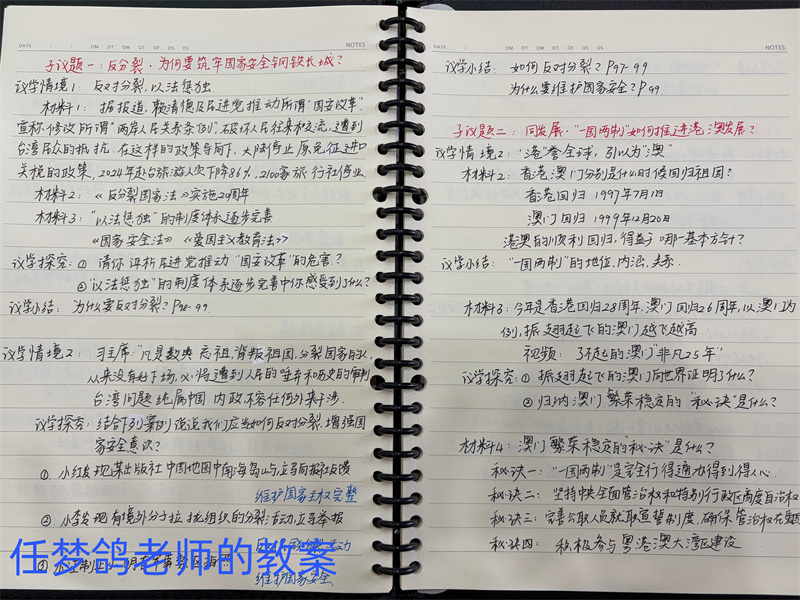 DATE / / OM OT OW OT OF OS OS NOTES
子议题一:反分裂·为何要筑牢国家安全钢铁长城?
议学情境1: 反对分裂,以法惩独
材料1: 据报道,赖清德及民进党推动所谓"国安改革",
宣称修改所谓"两岸人民关系条例",破坏人民往来和交流,遭到
台湾民众的抵抗.在这样的政策导向下,大陆停止原免征进口
关税的政策,2024年赴台旅游人次下降86%,2100家旅行社停业.
材料2: 《反分裂国家法》实施20周年
材料3: "以法惩独"的制度体系逐步完善
《国家安全法》 《爱国主义教育法》
议学探究: ① 请你评析民进党推动"国安改革"的危害?
②"以法惩独"的制度体系逐步完善中你感受到了什么?
议学小结: 为什么要反对分裂? P98-99
议学情境2: 习主席:"凡是数典忘祖,背叛祖国,分裂国家的人,
从来没有好下场,必将遭到人民的唾弃和历史的审判
台湾问题纯属中国内政,不容任何外来干涉.
议学探究: 结合下列案例说说我们应当如何反对分裂,增强国
家安全意识?
① 小红发现某出版社中国地图中南海岛屿与立马向报社反馈
维护国家主权完整
② 小李发现有境外分子拉拢组织的分裂活动立马举报
③
维护国家安全
任梦鸽老师的教案
DATE / / OM OT OW OT OF OS OS NOTES
议学小结: 如何反对分裂? P97-99
为什么要维护国家安全? P99
子议题二: 同发展·"一国两制"如何推进港澳发展?
议学情境2: "港"誉全球,引以为"澳"
材料2: 香港、澳门分别是什么时候回归祖国?
香港回归 1997年7月1
澳门回归 1999年12月20日
港澳的顺利回归,得益于哪一基本方针?
议学小结: "一国两制"的地位、内涵、关系.
材料3: 今年是香港回归28周年,澳门回归26周年,以澳门为
例,振翅起飞的澳门越飞越高
视频: 了不起的澳门"非凡25年"
议学探究: ① 振翅起飞的澳门向世界证明了什么?
② 归纳澳门繁荣稳定的"秘诀"是什么?
材料4: 澳门繁荣稳定的"秘诀"是什么?
秘诀一: "一国两制"是完全行得通办得到得人心
秘诀二: 坚持中央全面管治权和特别行政区高度自治权
秘诀三: 完善公职人员就职宣誓制度,确保管治权在爱国
秘诀四: 积极参与粤港澳大湾区建设